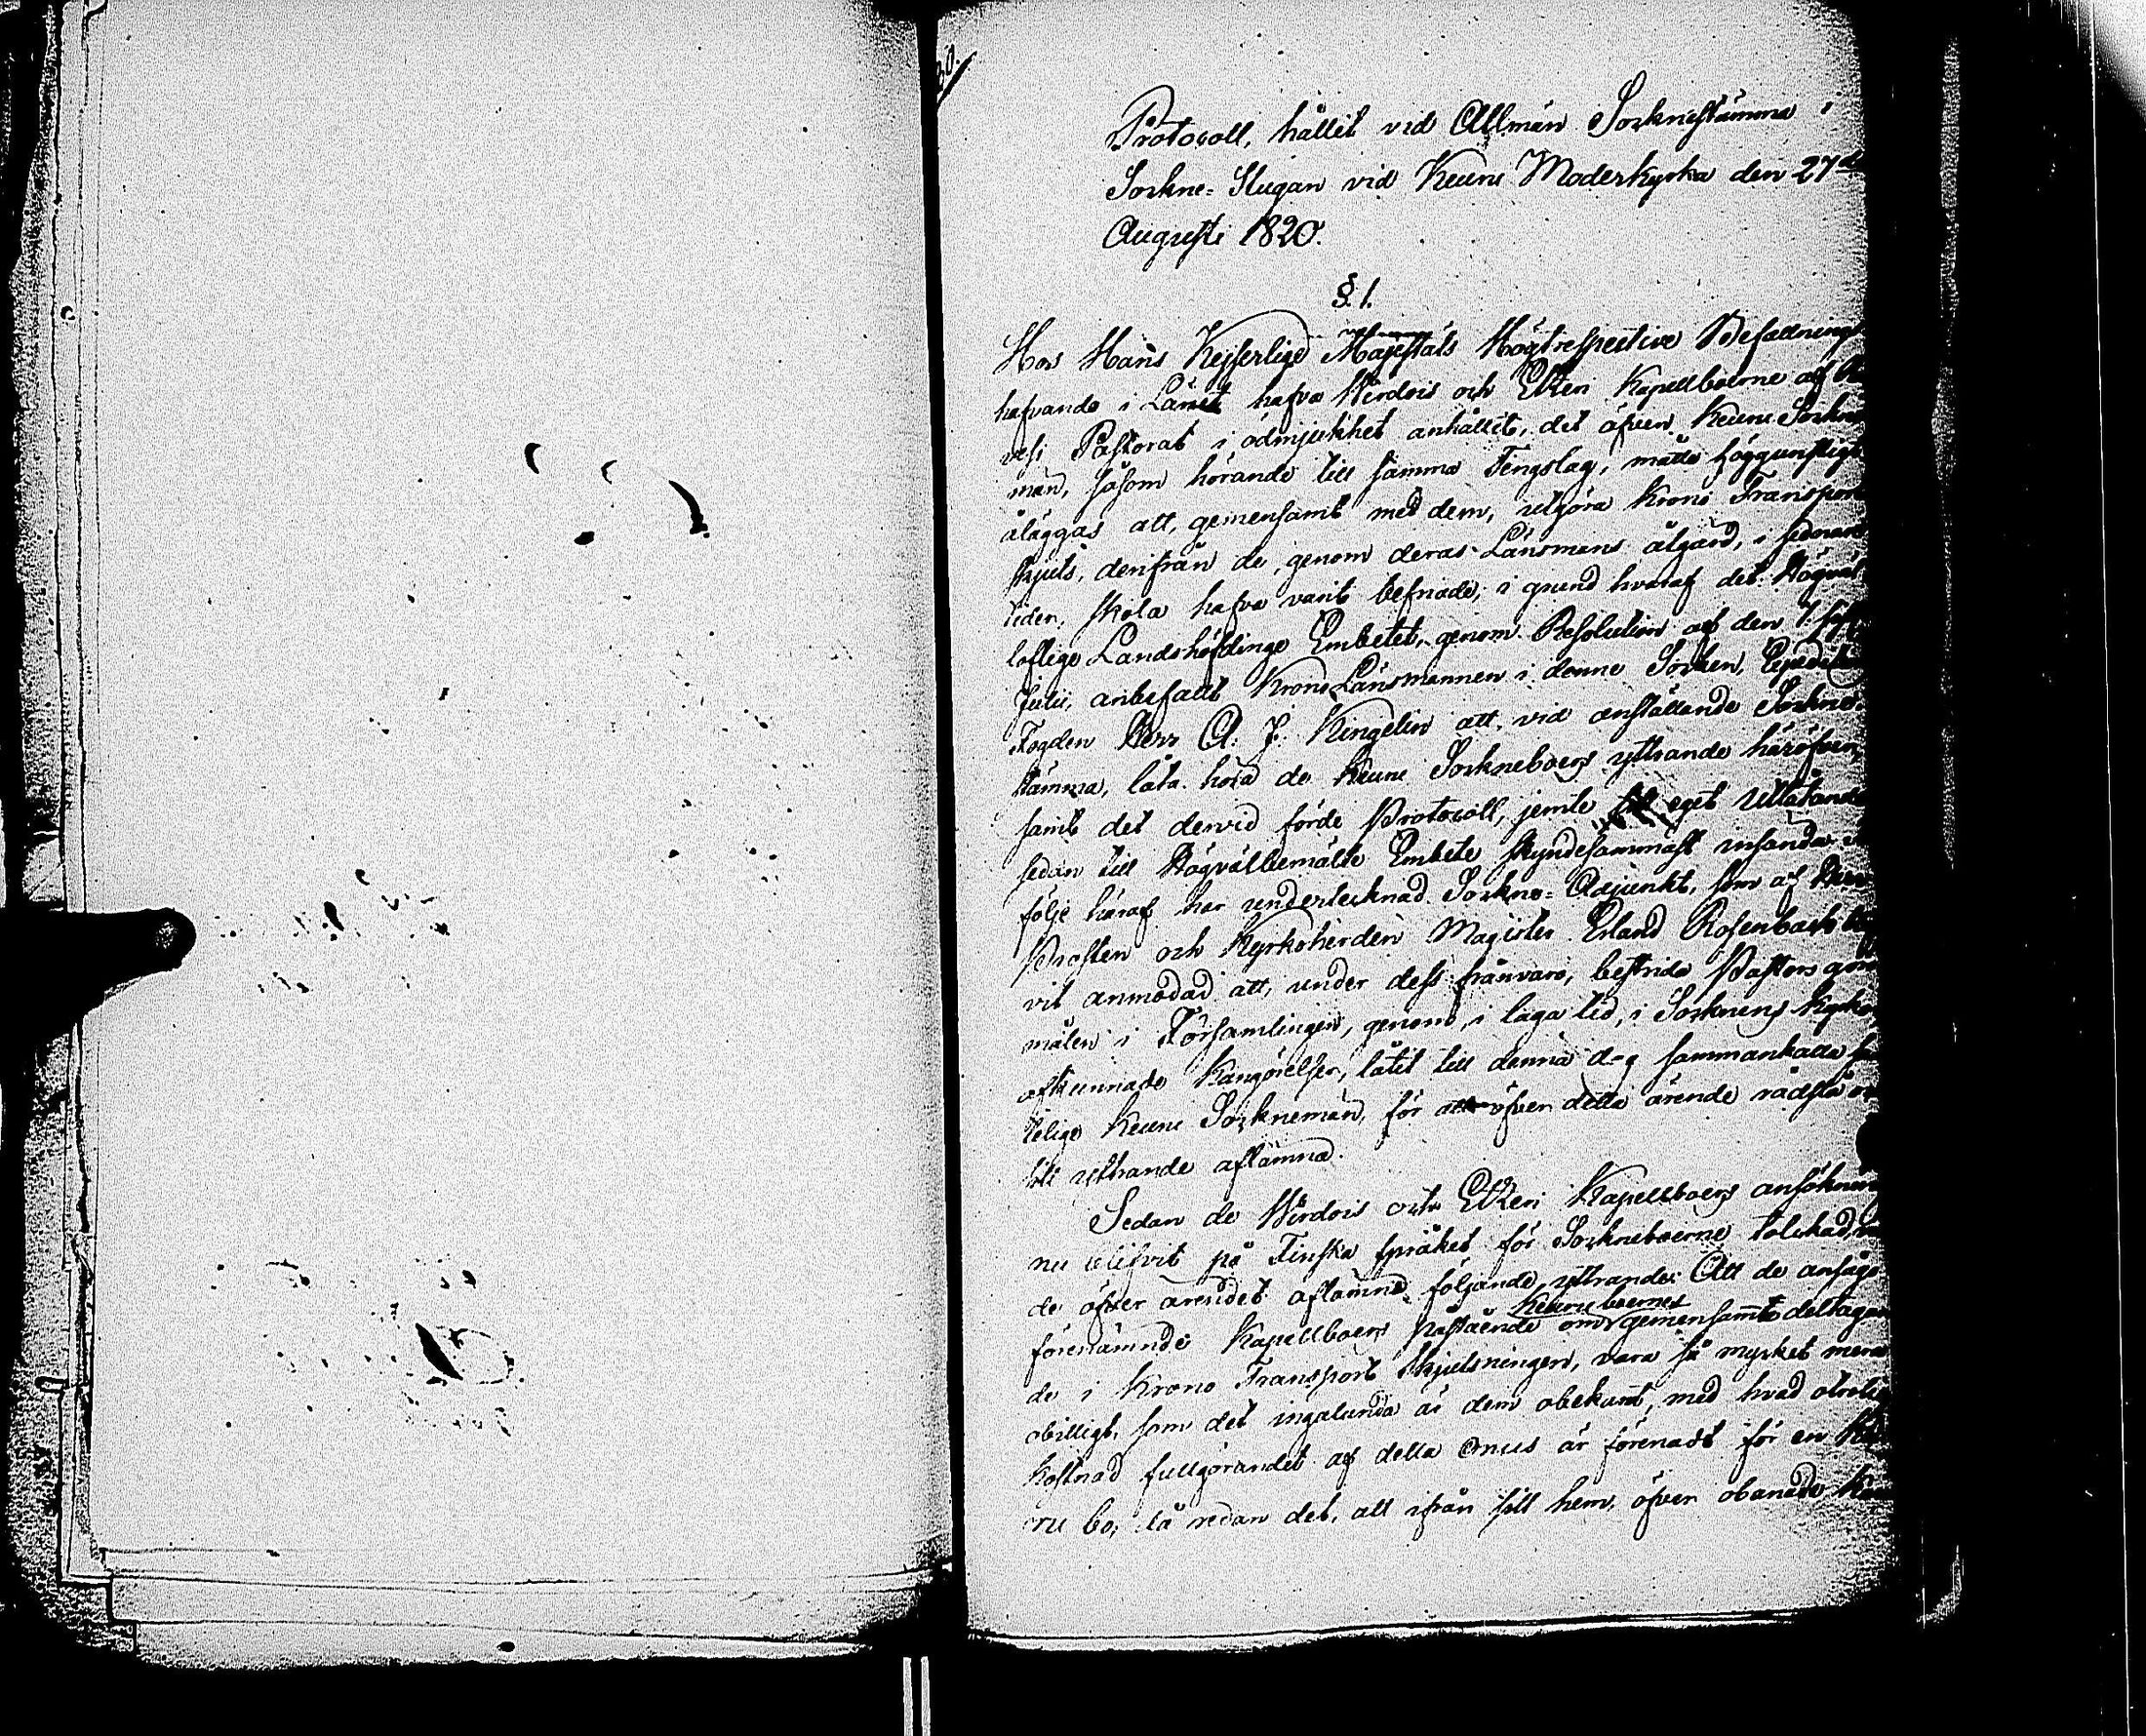 20.
Protocoll, hållit vid Allmän Sorknestämma i
Sorkne-Stugan vid Keuru Moderkyrka den 27de
Augusti 1820.
§. 1.
Hos Hans Kejserlige Majestäts Högtrespective Befallnings
hafvande i Länet hafva Wirdois och Etseri Kapellboerne af
vesi Pastorat i ödmjukhet anhållit, det äfven Keuru Sorkne
män, såsom hörande till samma Tingslag, måtte höggunstigt
åläggas att, gemensamt med dem, utgöra Krono Transport
skjuts, derifrån de, genom deras Länsmans åtgärd, i sednare
tider, skola hafva varit befriade; i grund hvaraf det Högväl
loflige Landshöfdinge Embetet, genom Resolution af den 7.
Julii, anbefallt Krono Länsmannen i denne Sorken,
Fogden Herr A. J. Kingelin att, vid anställande Sorkne-
stämma, låta höra de Keuru Sorkneboers yttrande häröfver,
samt det dervid förde Protocoll, jemte eget Utlåtande
sedan till Högvälbemälte Embete skyndesammast insända.
följe häraf har undertecknad Sorkne-Adjunkt, som af Herr
Prosten och Kyrkoherden Magister Erland Rosenback
vit anmodad att, under dess frånvaro, bestrida Pastors göro
målen i Församlingen, genom, i laga tid, i Sorknens Kyrko
afkunnade Kungörelser, låtit till denna dag sammankalla
telige Keuru Sorknemän, för att öfver detta ärende rådslå
sitt yttrande aflämna.
Sedan de Wirdois och Etseri Kapellboers ansökning
nu blifvit på Finska språket för Sorkneboerne tolckad,
de öfver ärendet aflämna följande yttrande: Att de anságo
förenämnde Kapellboers påstående om Keuruboernes gemensamt deltagan
de i Krono Transport skjutsningen, vara så mycket mera
obilligt, som det ingalunda är dem obekant, med hvad otrolig
kostnad fullgörandet af detta Onus är förenadt för en Keu
ru bo; ty redan det, att ifrån sitt hem, öfver obanade